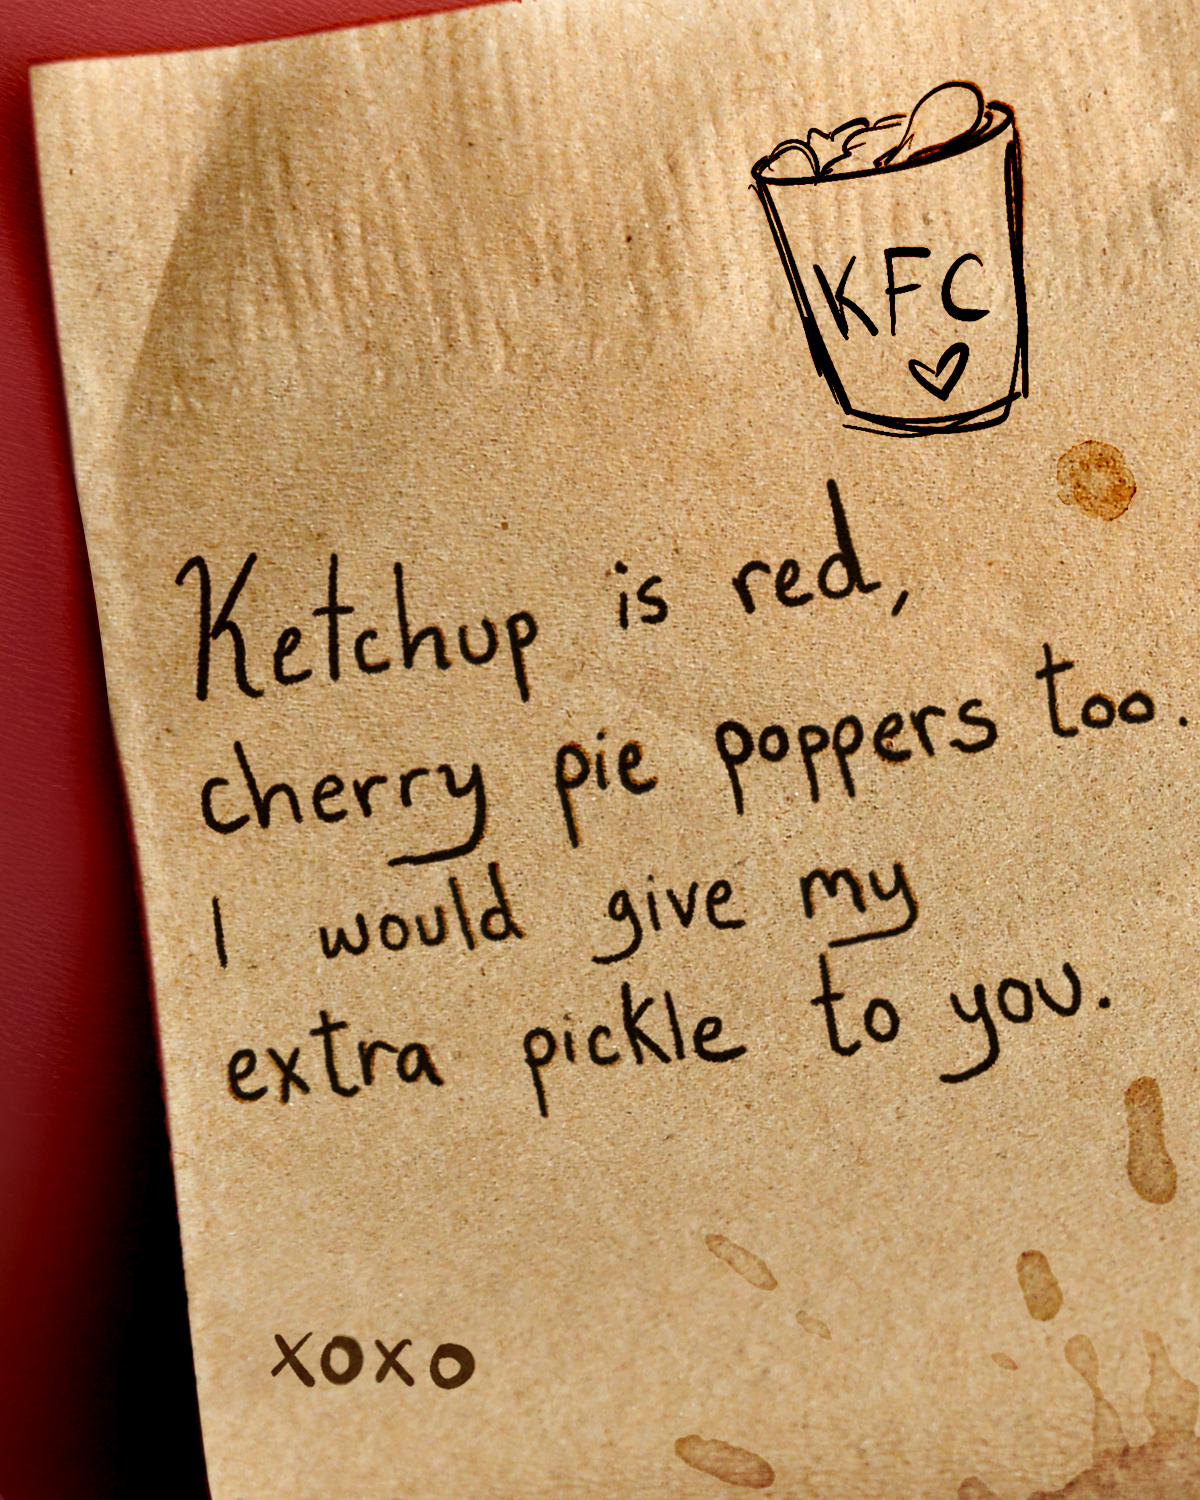 KFC
Ketchup is red,
cherry pie poppers too.
I would give my
extra pickle to you.
xoxo